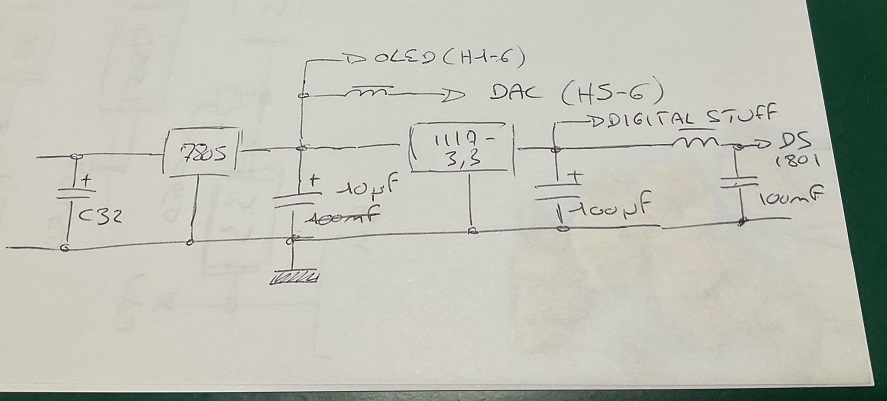 OLED (H1-6)
DAC (H5-6)
DIGITAL STUFF
7805
1117-
3,3
DS
1801
+
C32
+ 10µF
100nF
+
100µF
100nF